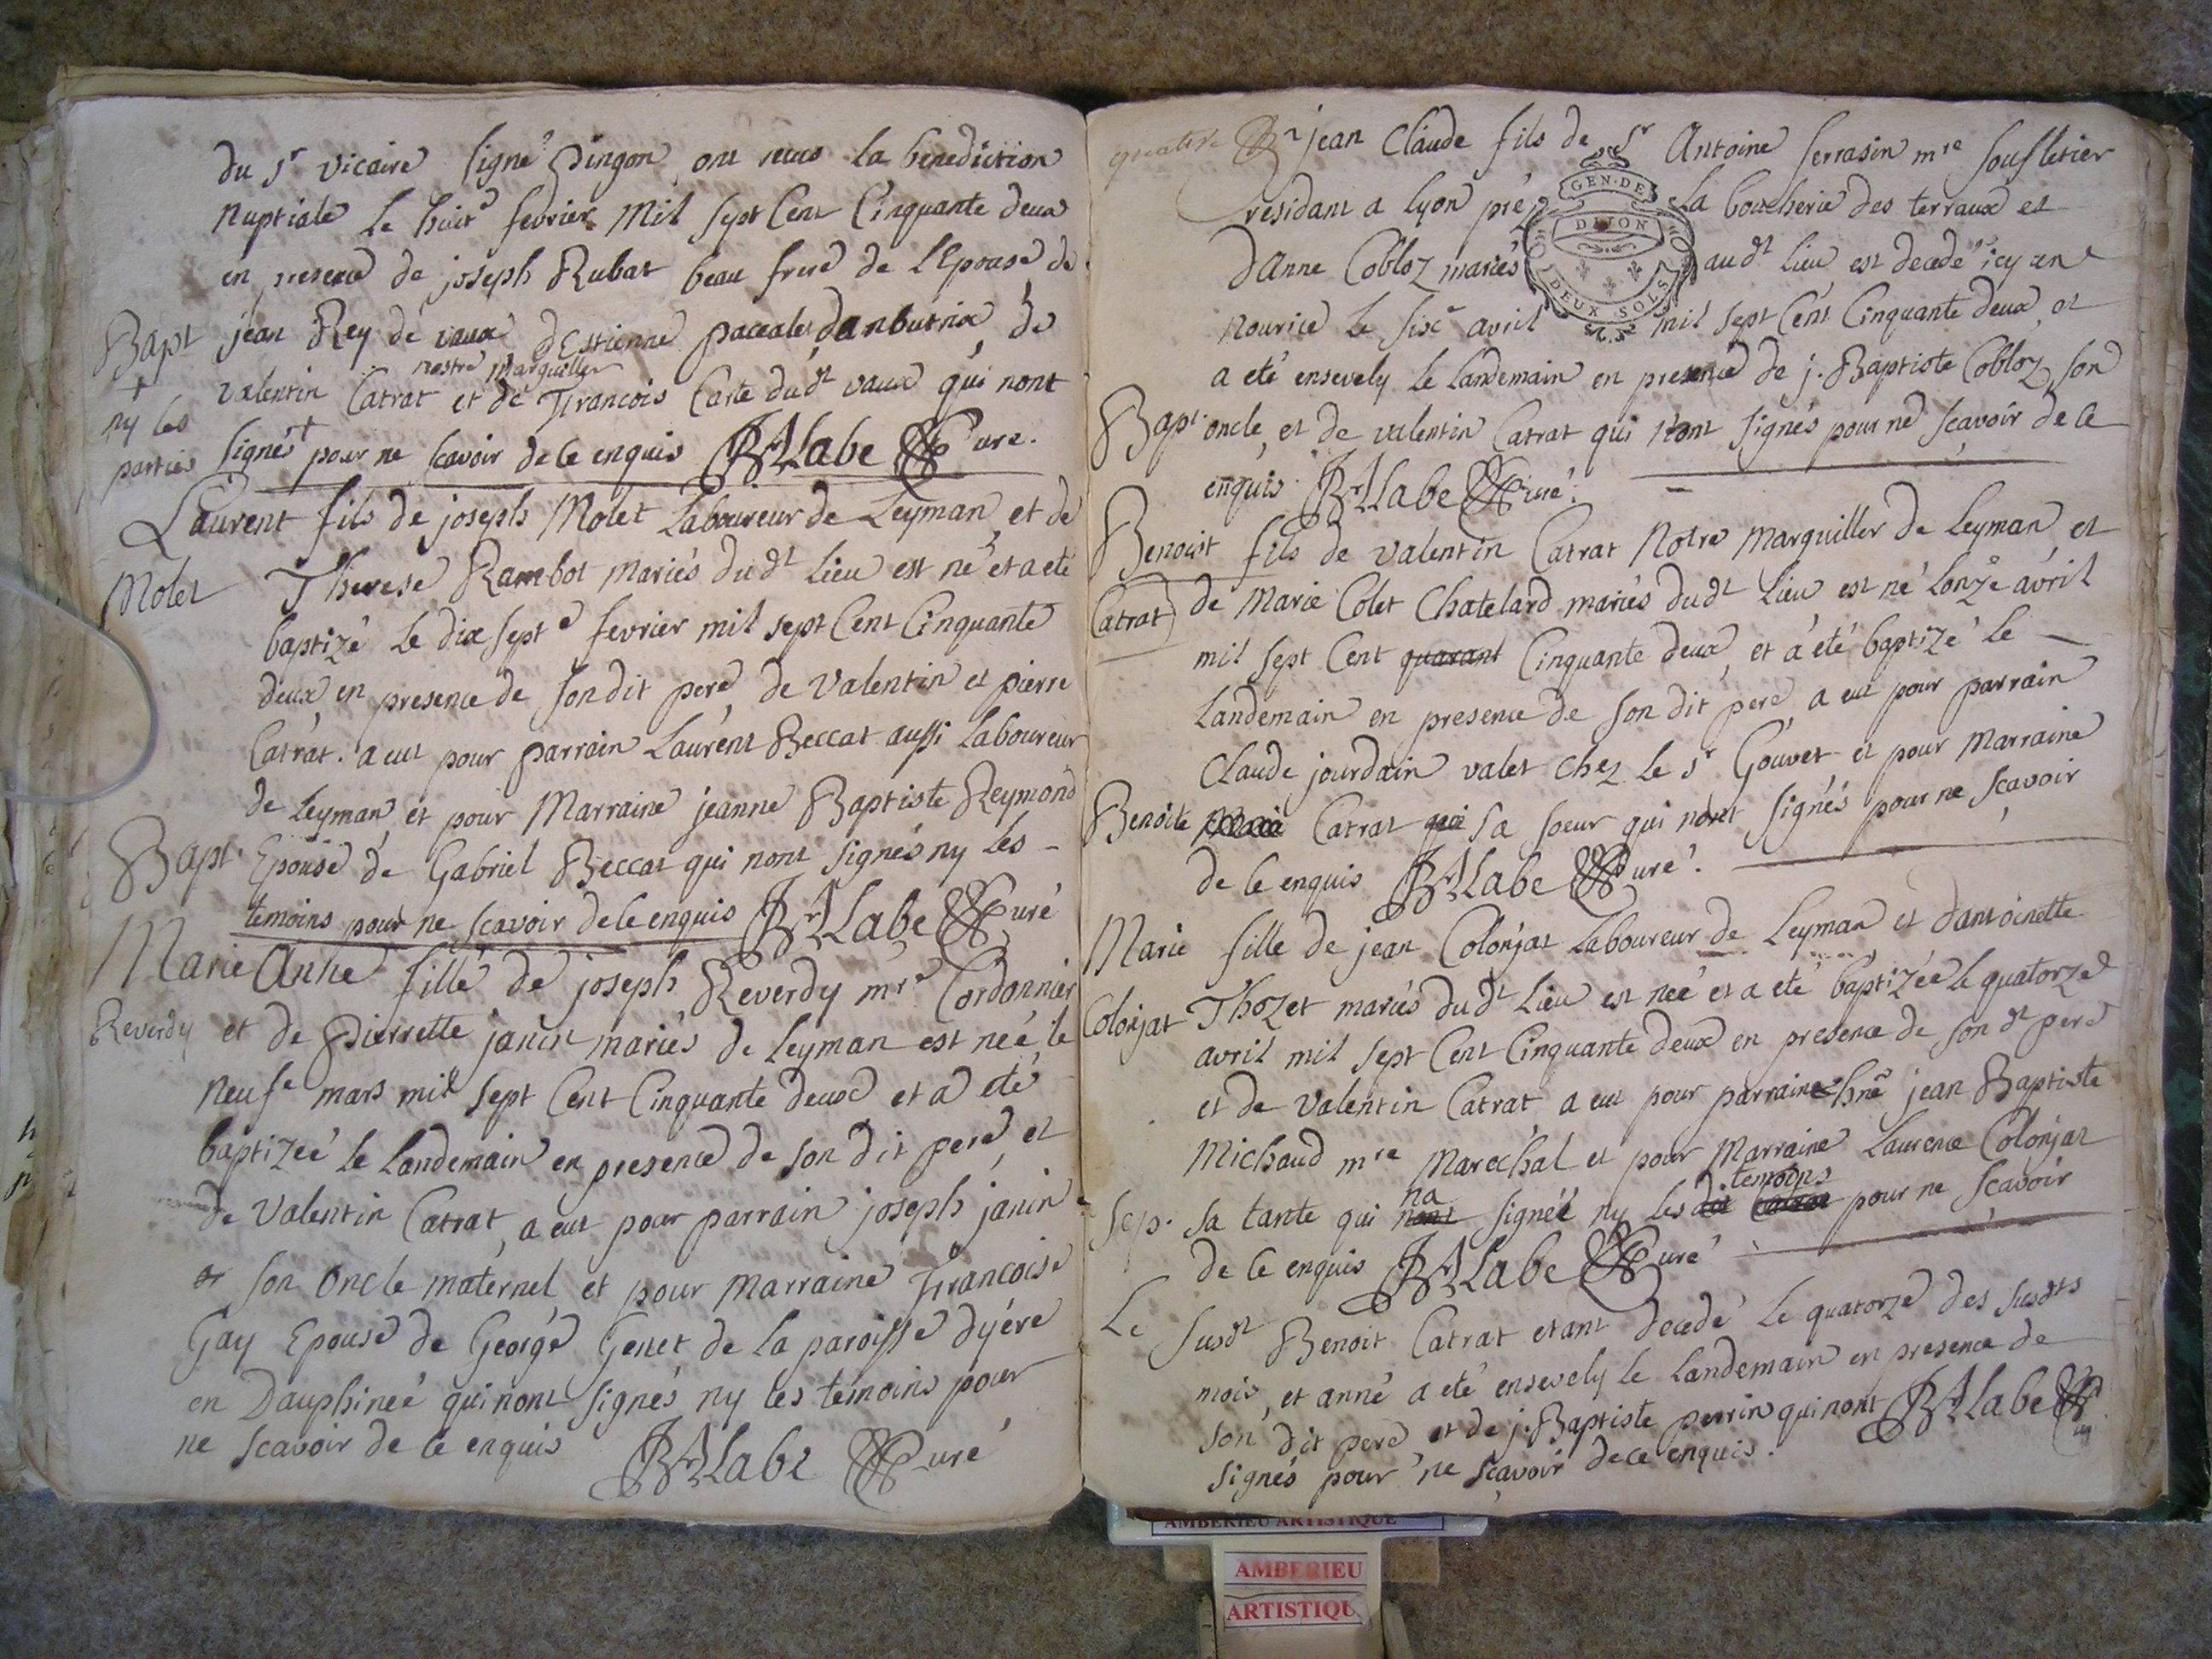 du Sr vicaire signé Dingon ont recus la benediction
nuptiale le huite fevrier mil sept Cent Cinquante deux
en presence de joseph Rubat beau frere de l'Epouse de
Bapt
jean Rey de vaux d'Estienne paccalet danbutrix de
nostre Marguiller
valentin Catrat et de François Carte dudt vaux qui nont
+
ny les
parties
signés + pour ne scavoir de ce enquis JBALabe Curé.
Laurent fils de joseph Molet Laboureur de Leyman et de
Molet
Therese Rambot mariés dudt lieu est né et a eté
baptizé le dix septe fevrier mil sept Cent Cinquante
deux en presence de son dit pere de Valentin et pierre
Catrat. a eut pour parrain Laurent Beccat aussi Laboureur
de Leyman et pour Marraine jeanne Baptiste Reymond
Bapt.
Epouse de Gabriel Beccat qui nont signés ny les -
temoins pour ne scavoir de ce enquis JBALabe Curé
Marie Anne fille de joseph Reverdy mre Cordonnier
Reverdy
et de Pierrette janin mariés de Leyman est neé le
neufe mars mil sept Cent Cinquante deux et a eté
baptizeé le Landemain en presence de son dit pere et
de Valentin Catrat, a eut pour parrain joseph janin
son Oncle maternel et pour Marraine Francoise
Gay Epouse de George Genet de la paroisse dyére
en Dauphineé qui nont signés ny les temoins pour
ne scavoir de ce enquis JBALabe Curé
quatre
jean Claude fils de Sr Antoine Serrasin mre soufletier
residant a Lyon préz la boucherie des terraux et
d'Anne Cobloz mariés audt lieu est decedé icy en
nourice le sixe avril mil sept Cent Cinquante deux et
a eté ensevely le landemain en presence de j. Baptiste Cobloz son
GEN. DE
DIJON
DEUX SOLS
Bapt.
oncle et de valentin Catrat qui nont signés pour ne scavoir de ce
enquis JBALabe Curé.
Benoist fils de valentin Catrat Notre Marguiller de Leyman et
Catrat
de Marie Colet Chatelard mariés dudt Lieu est né Lonze avril
mil sept Cent quarant Cinquante deux et a été baptizé le
Landemain en presence de son dit pere a eut pour parrain
Claude jourdain valet chez le Sr Gouvet et pour Marraine
Benoite Catrat qui sa soeur qui nont signés pour ne scavoir
de ce enquis JBALabe Curé.
Marie fille de jean Colonjat Laboureur de Leyman et dantoinette
Colonjat
Thozet mariés dudt Lieu est neé et a eté baptizée le quatorze
avril mil sept Cent Cinquante deux en presence de son dt pere
et de Valentin Catrat a eut pour parrain hne jean Baptiste
Michaud mre Marechal et pour Marraine Laurence Colonjat
Sep.
na
temoins
sa tante qui nont signée ny les dit Catrat pour ne scavoir
de ce enquis JBALabe Curé
Le susdt Benoit Catrat etant decedé le quatorze des susdts
mois, et anné a eté ensevely le landemain en presence de
son dit pere et de j. Baptiste perrin qui nont JBALabe Curé
signés pour ne scavoir de ce enquis.
AMBERIEU ARTISTIQUE
AMBERIEU
ARTISTIQU